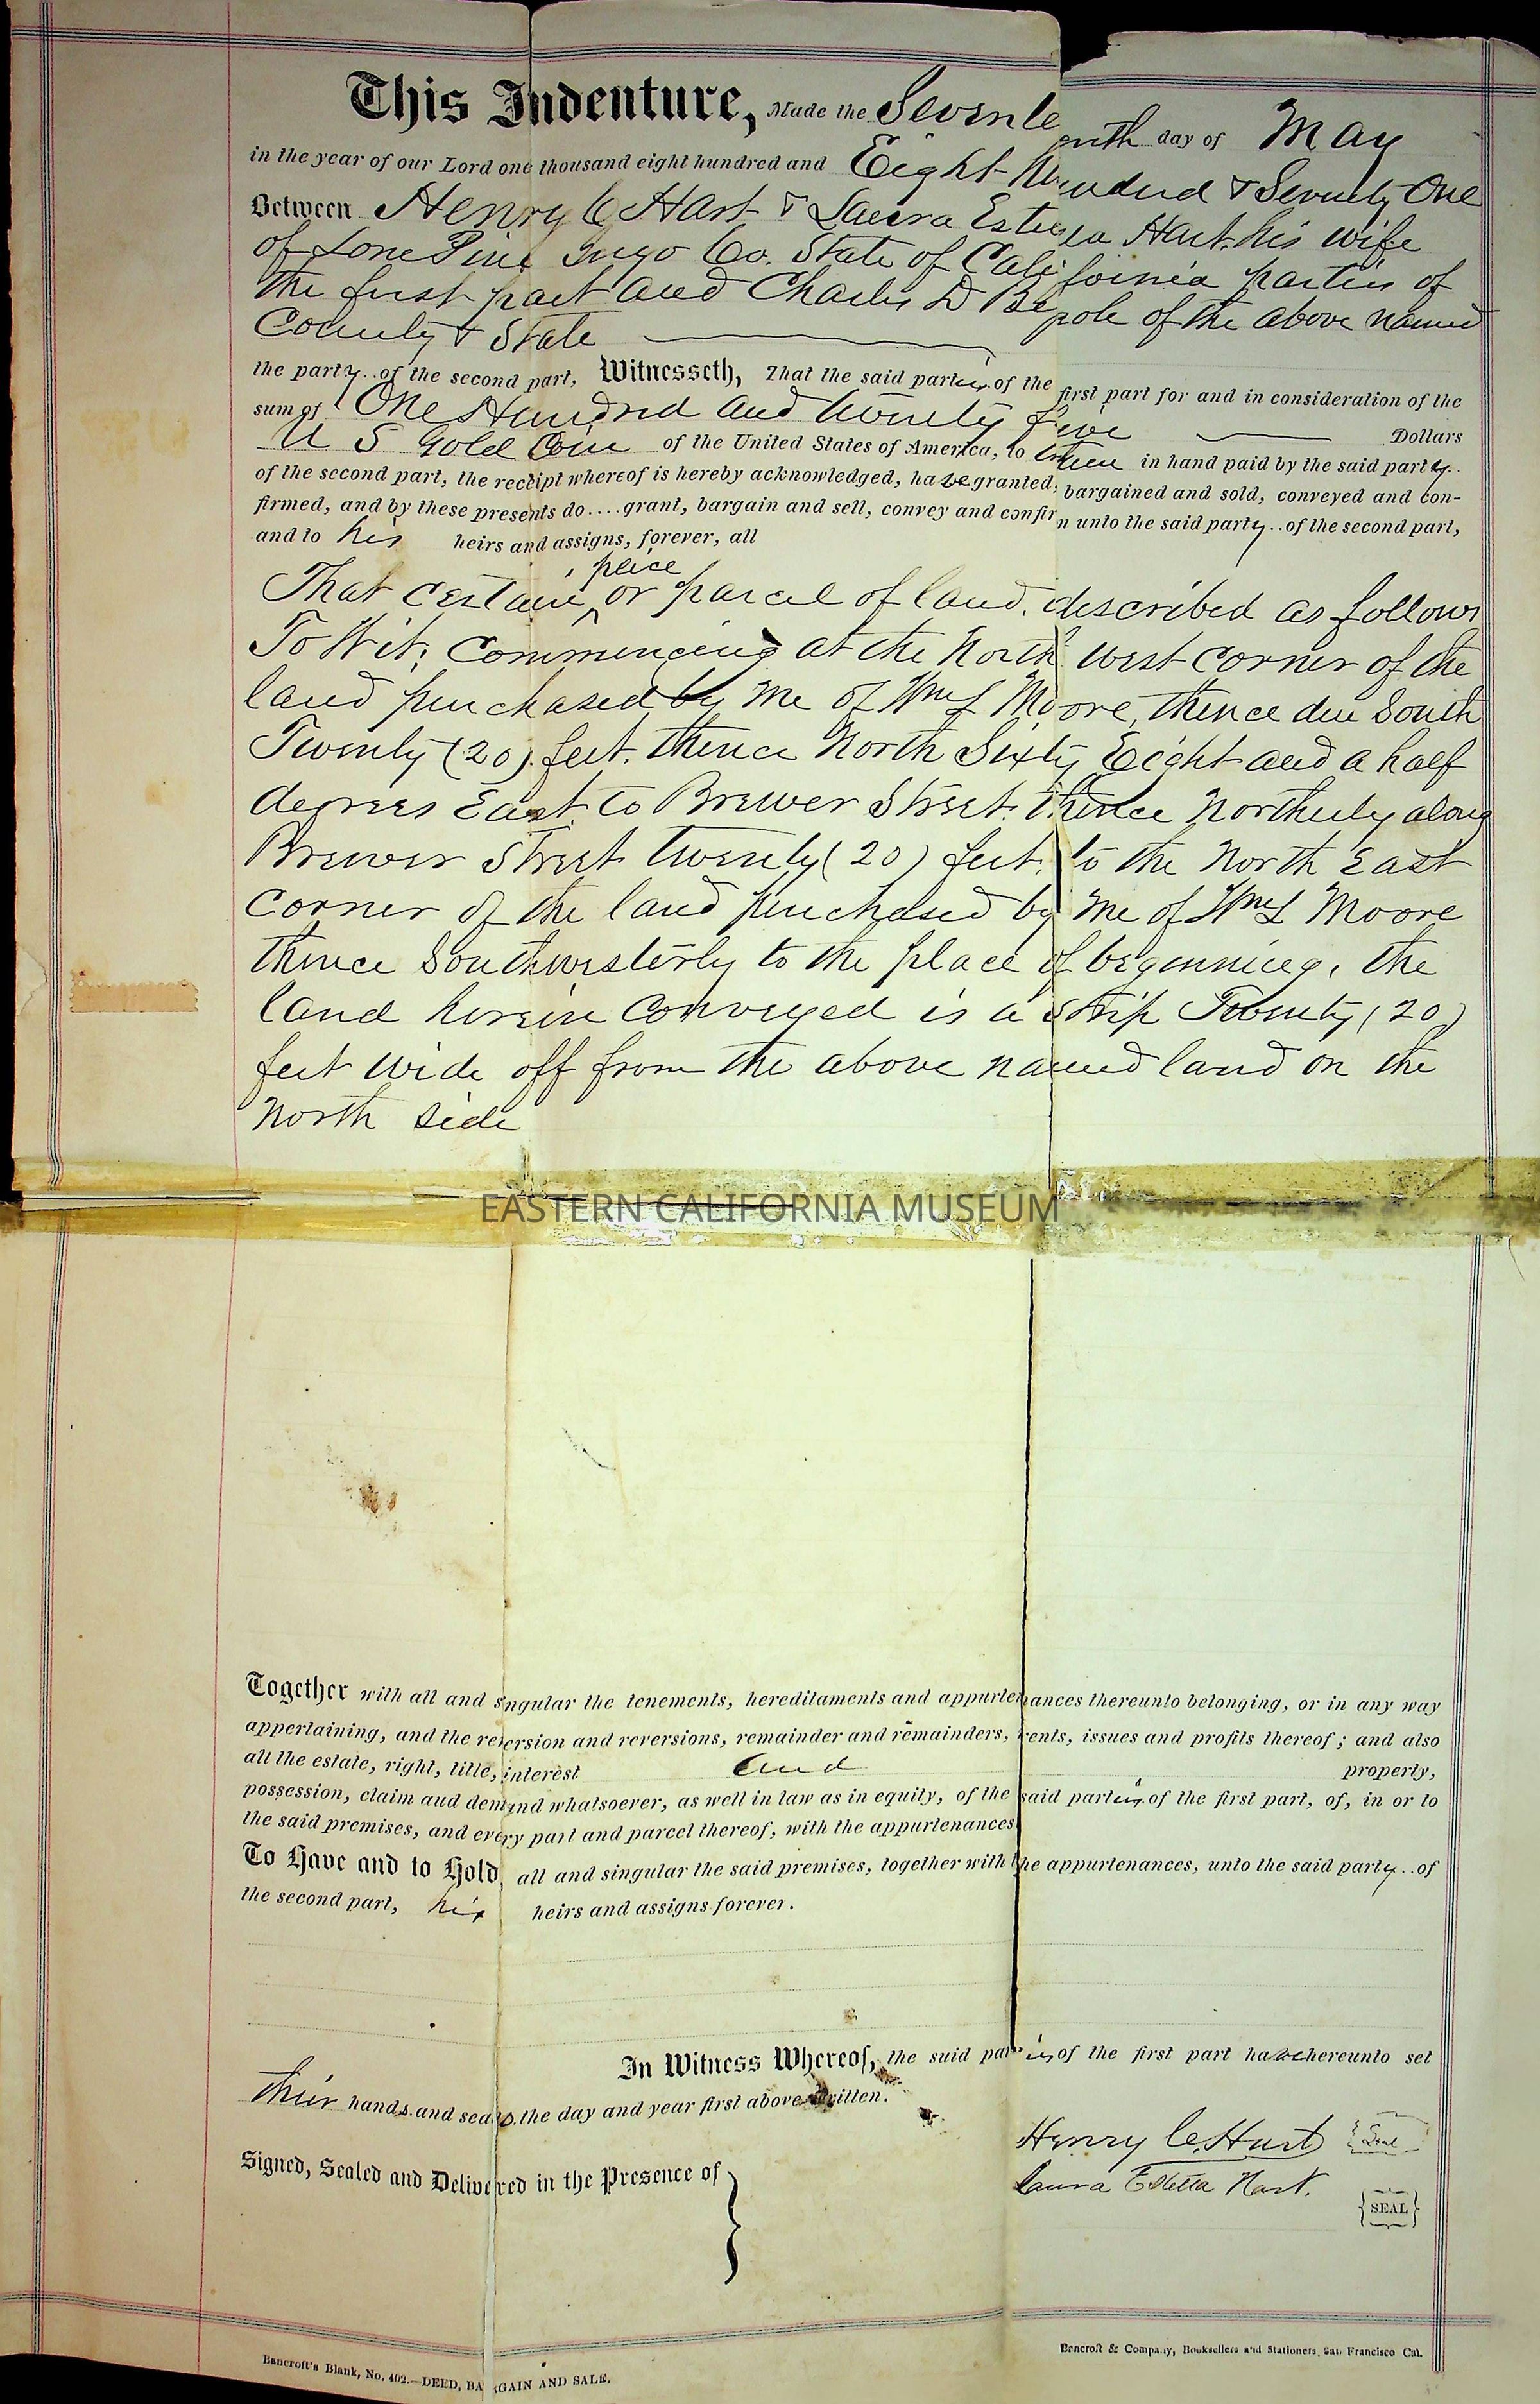 This Indenture, Made the Seventeenth day of May
in the year of our Lord one thousand eight hundred and Eight Hundred & Seventy One
Between Henry C Hart & Laura Estella Hart his wife
of Lone Pine Inyo Co. State of California parties of
the first part and Charles D Begole of the above named
County & State
the party of the second part, Witnesseth, That the said parties of the first part for and in consideration of the
sum of One Hundred and twenty five Dollars
U S Gold Coin of the United States of America, to them in hand paid by the said party
of the second part, the receipt whereof is hereby acknowledged, have granted, bargained and sold, conveyed and con-
firmed, and by these presents do....grant, bargain and sell, convey and confirm unto the said party..of the second part,
and to his heirs and assigns, forever, all
peice
That certain or parcel of land. described as follows
To Wit; Commencing at the North west corner of the
land purchased by me of Wm L Moore, thence due South
Twenty (20) feet. thence North Sixty Eight and a half
degrees East to Brewer Street. thence Northerly along
Brewer Street twenty (20) feet. to the North East
corner of the land purchased by me of Wm L Moore
thence Southwesterly to the place of beginning, the
land herein conveyed is a strip Twenty (20)
feet wide off from the above named land on the
North side
EASTERN CALIFORNIA MUSEUM
Together with all and singular the tenements, hereditaments and appurtenances thereunto belonging, or in any way
appertaining, and the reversion and reversions, remainder and remainders, rents, issues and profits thereof; and also
all the estate, right, title, interest and property,
possession, claim and demand whatsoever, as well in law as in equity, of the said parties of the first part, of, in or to
the said premises, and every part and parcel thereof, with the appurtenances
To Have and to Hold, all and singular the said premises, together with the appurtenances, unto the said party..of
the second part, his heirs and assigns forever.
In Witness Whereof, the said parties of the first part have hereunto set
their hands and seals the day and year first above written.
Signed, Sealed and Delivered in the Presence of
Henry C. Hart Seal
Laura Estella Hart.
SEAL
Bancroft's Blank, No. 402.—DEED, BARGAIN AND SALE.
Bancroft & Company, Booksellers and Stationers, San Francisco Cal.